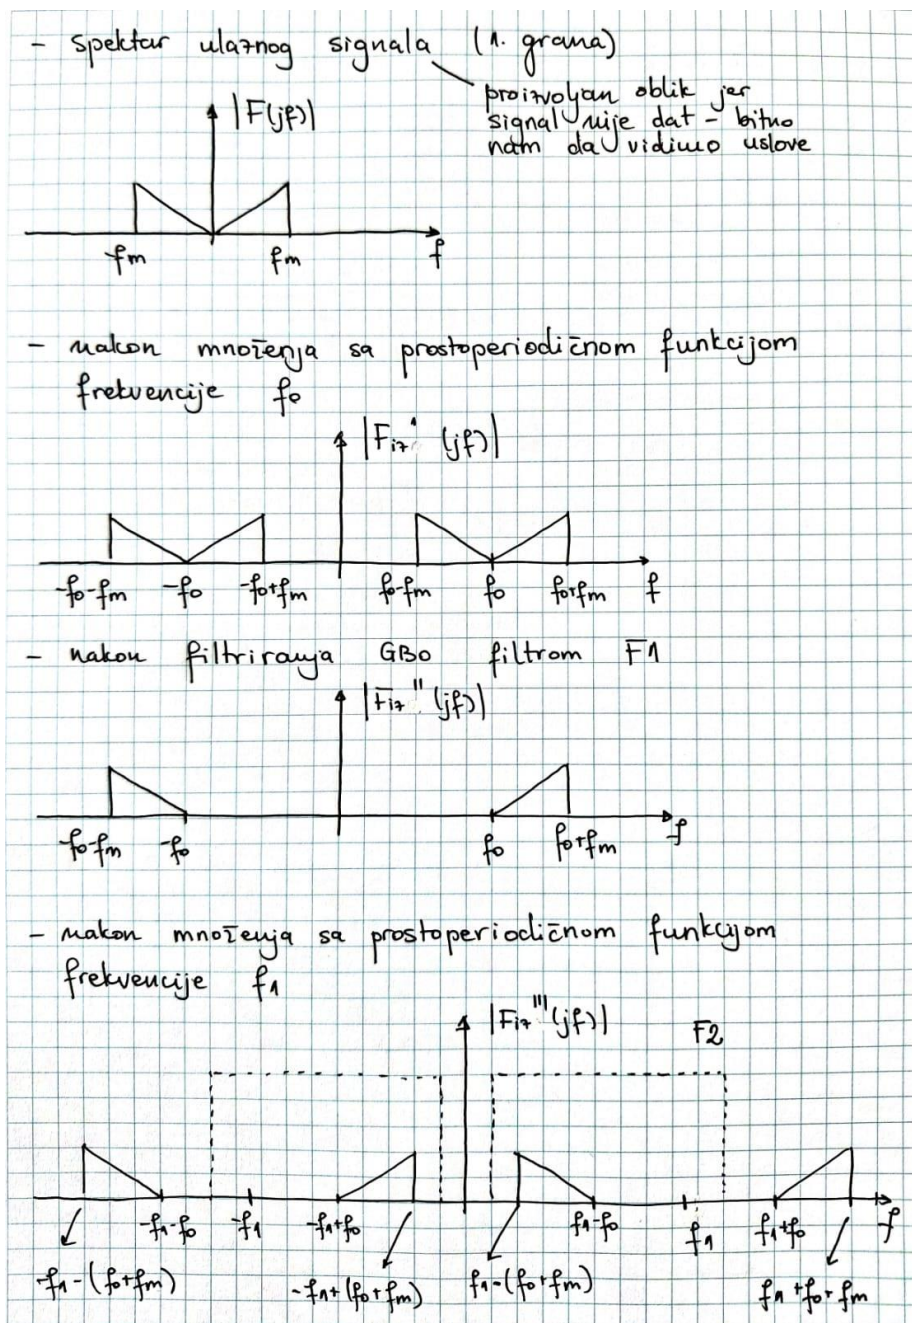 - spektar ulaznog signala (1. grana)
proizvoljan oblik jer
signal nije dat - bitno
nam da vidimo uslove
|F(jf)|
-fm fm f
- nakon množenja sa prostoperiodičnom funkcijom
frekvencije f0
|Fiz' (jf)|
-f0-fm -f0 -f0+fm f0-fm f0 f0+fm f
- nakon filtriranja GBO filtrom F1
|Fiz'' (jf)|
-f0-fm -f0 f0 f0+fm f
- nakon množenja sa prostoperiodičnom funkcijom
frekvencije f1
|Fiz''' (jf)| F2
-f1-f0 -f1 -f1+f0 f1-f0 f1 f1+f0 f
-f1-(f0+fm) -f1+(f0+fm) f1-(f0+fm) f1+f0+fm